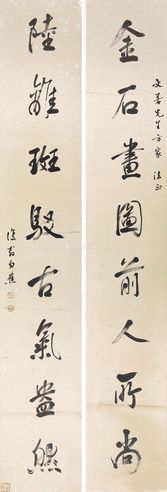 文善先生方家 法正
金石畫圖前人所尚
陸離斑駁古氣盎然
復翁白蕉